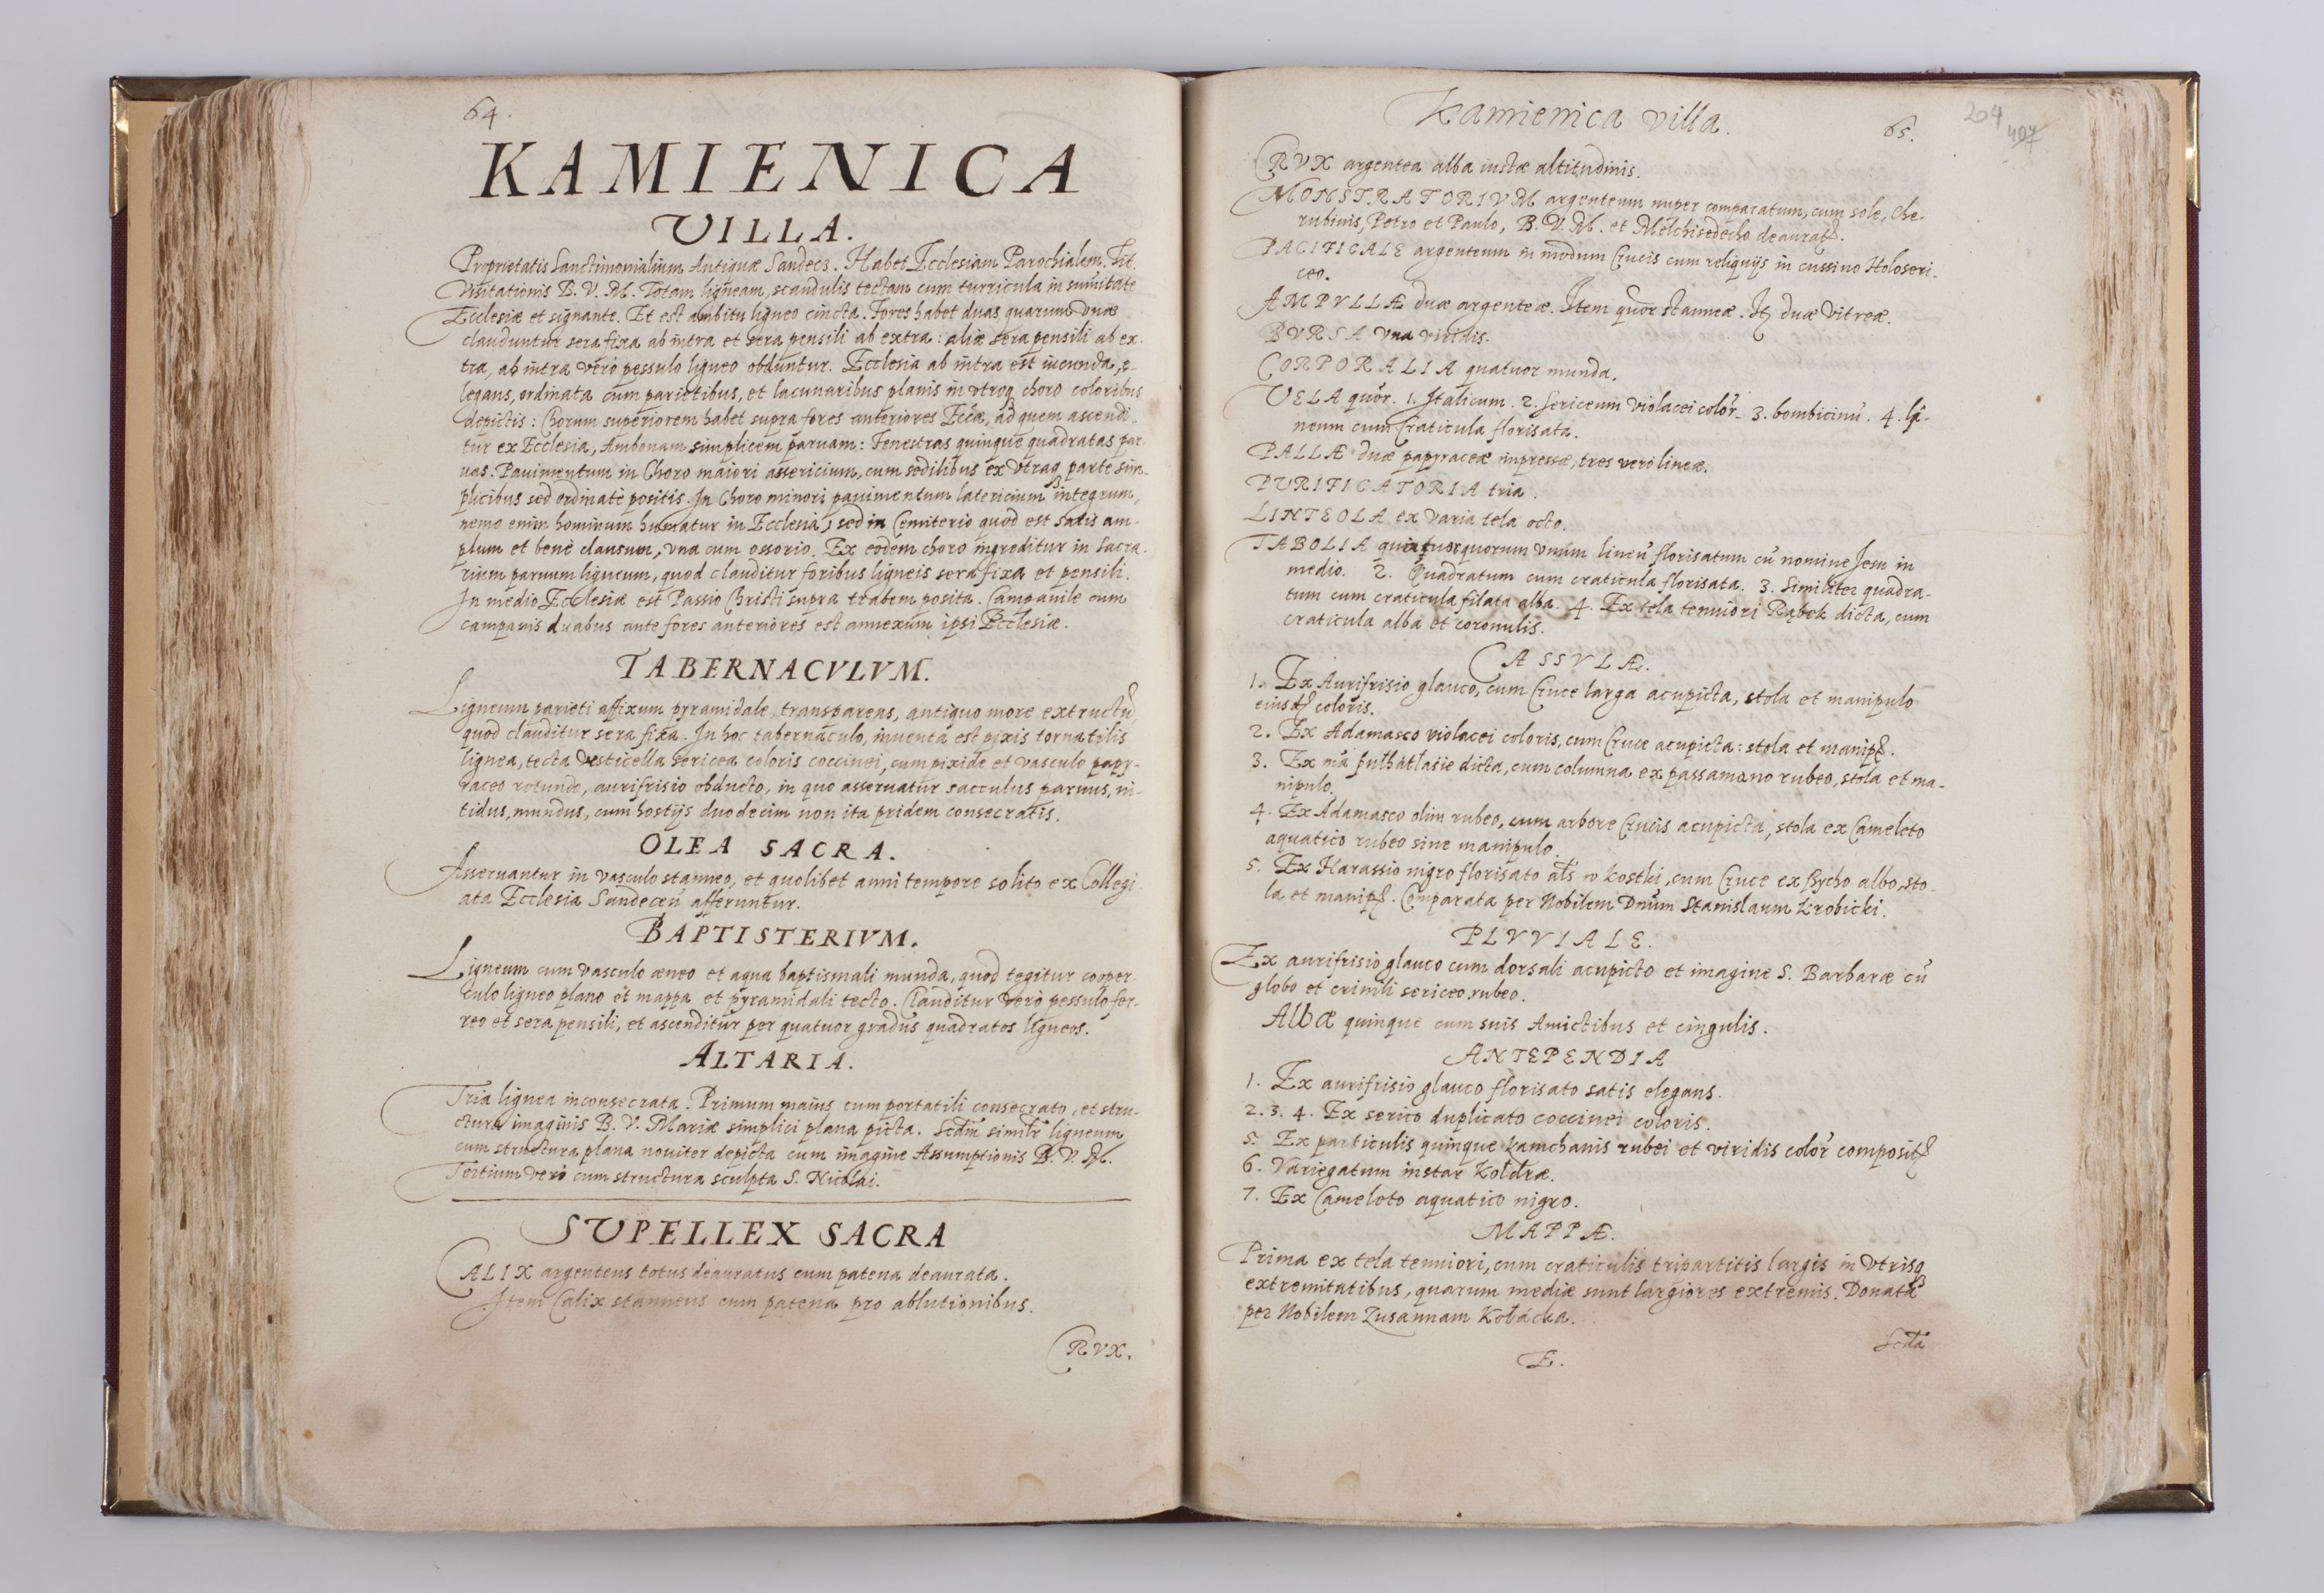 64.
KAMIENICA
VILLA.
Proprietatis Sanctimonialium Antiquæ Sandecz. Habet Ecclesiam Parochialem. Tit.
Visitationis B. V. M. Totam ligneam, scandulis tectam cum turricula in sumitate
Ecclesiæ et signante. Et est ambitu ligneo cincta. Fores habet duas quarum unæ
clauduntur sera fixa ab intra et sera pensili ab extra: aliæ sera pensili ab ex-
tra, ab intra verò pessulo ligneo obduntur. Ecclesia ab intra est iucunda, e-
legans, ordinata cum parietibus, et lacunaribus planis in utroq choro coloribus
depictis: Chorum superiorem habet supra fores anteriores Eccæ, ad quem ascendi-
tur ex Ecclesia, Ambonam simplicem paruam: Fenestras quinque quadratas par-
uas. Pauimentum in Choro maiori assericium, cum sedilibus ex Utraq parte sim-
plicibus sed ordinatè positis. In Choro minori pauimentum latericium integrum,
nemo enim hominum humatur in Ecclesia, sed in Cemiterio quod est satis am-
plum et benè clausum, una cum ossorio. Ex eodem choro ingreditur in Sacra-
rium paruum ligneum, quod clauditur foribus ligneis sera fixa et pensili.
In medio Ecclesiæ est Passio Christi supra trabem posita. Campanile cum
campanis duabus ante fores anteriores est annexum ipsi Ecclesiæ.
TABERNACVLVM.
Ligneum parieti affixum pyramidale, transparens, antiquo more extructũ,
quod clauditur sera fixa. In hoc tabernaculo, inventa est pixis tornatilis
lignea, tecta Vesticella sericea coloris coccinei, cum pixide et vasculo papy-
raceo rotundo, aurifrisio obducto, in quo asseruatur sacculus paruus, ni-
tidus, mundus, cum hostijs duodecim non ita pridem consecratis.
OLEA SACRA.
Asseruantur in vasculo stanneo, et quolibet anni tempore solito ex Collegi-
ata Ecclesia Sandecen afferuntur.
BAPTISTERIVM.
Ligneum cum vasculo æneo et aqua baptismali munda, quod tegitur cooper-
culo ligneo plano et mappa et pyramidali tecto. Clauditur verò pessulo fer-
reo et sera pensili, et ascenditur per quatuor gradus quadratos ligneos.
ALTARIA.
Tria lignea inconsecrata. Primum maius cum portatili consecrato, et stru-
ctura imaginis B. V. Mariæ simplici plana picta. Scdm similr ligneum
cum structura plana noviter depicta cum imagine Assumptionis B. V. M.
Tertium verò cum structura sculpta S. Nicolai.
SUPELLEX SACRA
CALIX argenteus totus deauratus cum patena deaurata.
Item Calix stanneus cum patena pro ablutionibus.
CRVX.
Kamienica villa.
65.
204
407
CRVX argentea alba iustæ altitudinis.
MONSTRATORIVM argenteum nuper comparatum, cum sole, Che-
rubinis, Petro et Paulo, B. V. M. et Melchisedecho deaurat.
PACIFICALE argenteum in modum Crucis cum reliquijs in cussino Holoseri-
ceo.
AMPVLLÆ duæ argenteæ. Item quor stanneæ. It duæ Vitreæ.
BVRSA Una viridis.
CORPORALIA quatuor munda.
VELA quor. 1. Italicum. 2. Sericeum violacei color. 3. bombicinũ. 4. li-
neum cum Craticula florisata.
PALLÆ duæ papyraceæ impressæ, tres verò lineæ.
PURIFICATORIA tria.
LINTEOLA ex varia tela octo.
TABOLIA quatuor quorum Vnum lineũ florisatum cũ nomine Jesu in
medio. 2. Quadratum cum craticula florisata. 3. Similiter quadra-
tum cum craticula filata alba. 4. Ex tela tenuiori Rąbek dicta, cum
craticula alba et coronulis.
CASSVLÆ.
1. Ex Aurifrisio glauco, cum Cruce larga acupicta, stola et manipulo
eiusd coloris.
2. Ex Adamasco violacei coloris, cum Cruce acupicta: stola et manip.
3. Ex mã pułhatłasie dicta, cum columna ex passamano rubeo, stola et ma-
nipulo.
4. Ex Adamasco olim rubeo, cum arbore Crucis acupicta, stola ex Cameleto
aquatico rubeo sine manipulo.
5. Ex Harassio nigro florisato als w kostki, cum Cruce ex albo, sto-
la et manip. Comparata per Nobilem Dnum Stanislaum Krobicki.
PLVVIALE.
Ex aurifrisio glauco cum dorsali acupicto et imagine S. Barbaræ cũ
globo et crinili sericeo rubeo.
Albæ quinque cum suis Amictibus et cingulis.
ANTEPENDIA
1. Ex aurifrisio glauco florisato satis elegans.
2. 3. 4. Ex serico duplicato coccinei coloris.
5. Ex particulis quinque kamchanis rubei et viridis color composit
6. Variegatum instar Kołdræ.
7. Ex Cameleto aquatico nigro.
MAPPÆ.
Prima ex tela tenuiori, cum craticulis tripartitis largis in Utrisq
extremitatibus, quarum mediæ sunt largiores extremis. Donata
per Nobilem Zusannam Kołácka.
Scda
E.